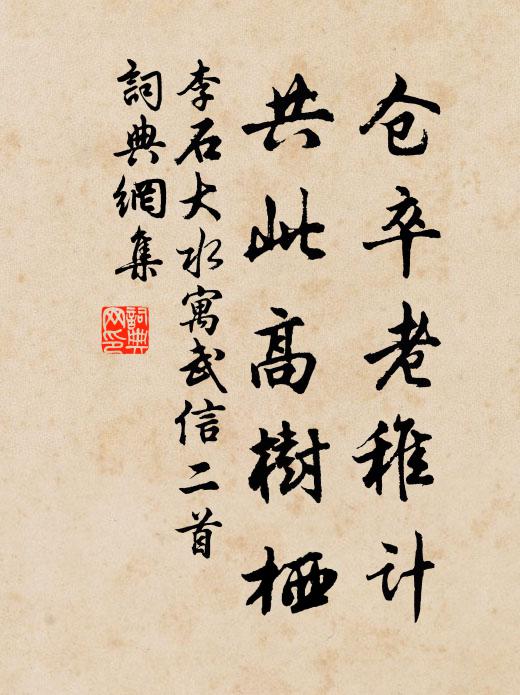 仓卒老稚计
共此高樹栖
李石大水寓武信二首
詞典網集
詞典网印